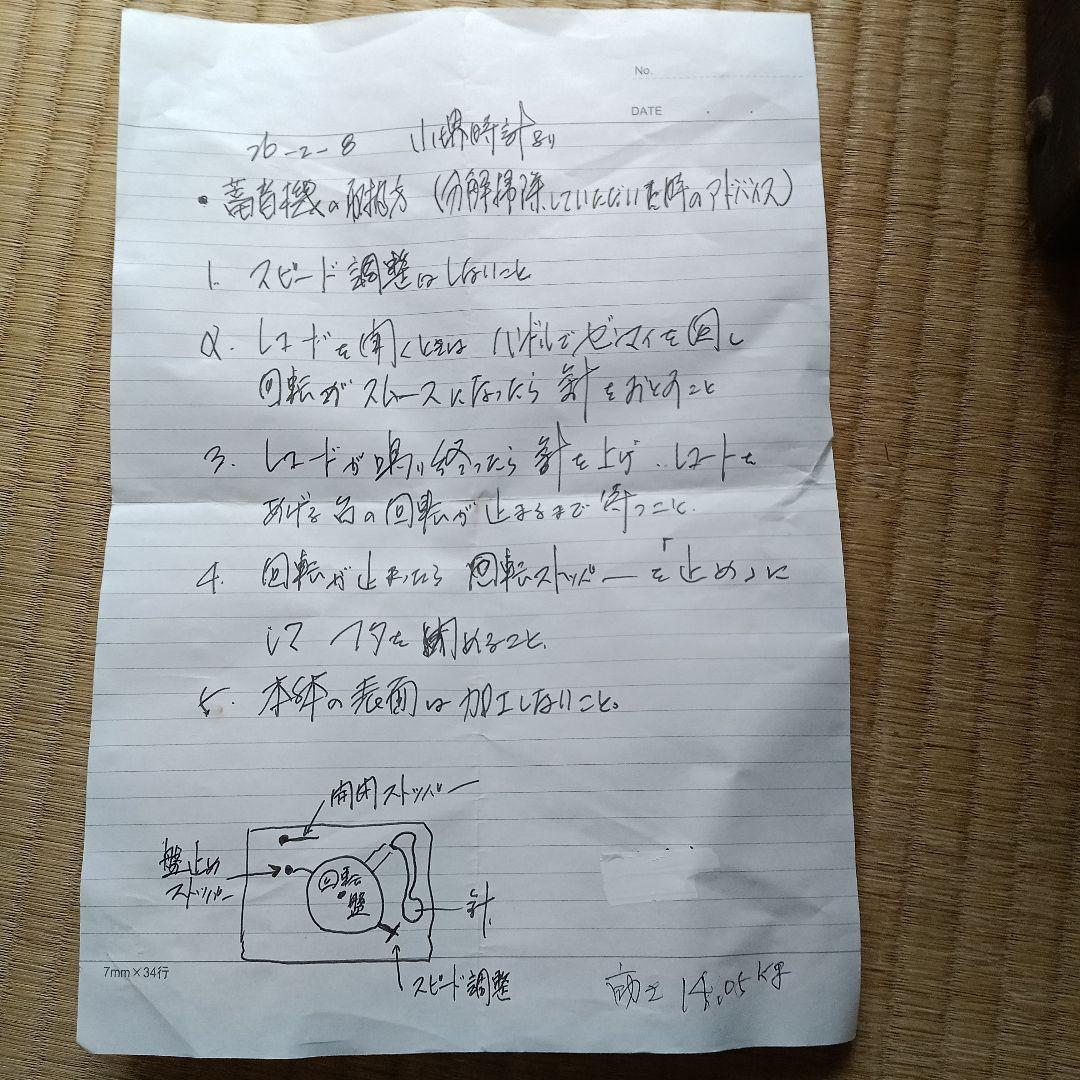 No.
DATE
26-2-8 小堺時計より
・蓄音機の取扱方(分解掃除していただいた時のアドバイス)
1. スピード調整はしないこと
2. レコードを聞くときはハンドルでゼンマイを回し
回転がスムースになったら針をおとすこと
3. レコードが鳴り終ったら針を上げ、レコードを
あげる台の回転が止まるまで待つこと.
4. 回転が止まったら回転ストッパーを「止め」に
して フタを閉めること.
5. 本体の表面は加工しないこと。
開閉ストッパー
盤止め
ストッパー
回転
盤
針
スピード調整
7mm×34行
14.05kg